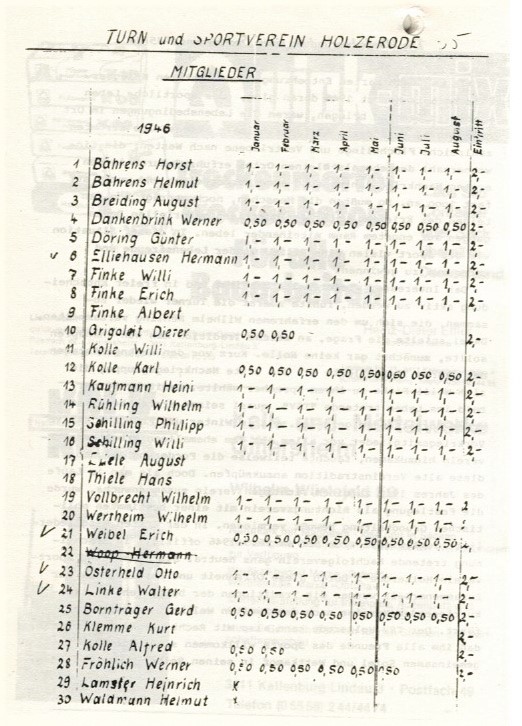 TURN und SPORTVEREIN HOLZERODE
MITGLIEDER
1946 Januar Februar März April Mai Juni Juli August Eintritt
1 Bährens Horst 1,- 1,- 1,- 1,- 1,- 1,- 1,- 1,- 2,-
2 Bährens Helmut 1,- 1,- 1,- 1,- 1,- 1,- 1,- 1,- 2,-
3 Breiding August 1,- 1,- 1,- 1,- 1,- 1,- 1,- 1,- 2,-
4 Dankenbrink Werner 0,50 0,50 0,50 0,50 0,50 0,50 0,50 0,50 2,-
5 Döring Günter 1,- 1,- 1,- 1,- 1,- 1,- 1,- 1,- 2,-
6 Elliehausen Hermann 1,- 1,- 1,- 1,- 1,- 1,- 1,- 1,- 2,-
7 Finke Willi 1,- 1,- 1,- 1,- 1,- 1,- 1,- 1,- 2,-
8 Finke Erich 1,- 1,- 1,- 1,- 1,- 1,- 1,- 1,- 2,-
9 Finke Albert
10 Grigoleit Dieter 0,50 0,50 2,-
11 Kolle Willi
12 Kolle Karl 0,50 0,50 0,50 0,50 0,50 0,50 0,50 0,50 2,-
13 Kaufmann Heini 1,- 1,- 1,- 1,- 1,- 1,- 1,- 1,- 2,-
14 Rühling Wilhelm 1,- 1,- 1,- 1,- 1,- 1,- 1,- 1,- 2,-
15 Schilling Philipp 1,- 1,- 1,- 1,- 1,- 1,- 1,- 1,- 2,-
16 Schilling Willi 1,- 1,- 1,- 1,- 1,- 1,- 1,- 1,- 2,-
17 August
18 Thiele Hans
19 Vollbrecht Wilhelm 1,- 1,- 1,- 1,- 1,- 1,- 1,- 1,- 2,-
20 Wertheim Wilhelm 1,- 1,- 1,- 1,- 1,- 1,- 1,- 1,- 2,-
21 Weibel Erich 0,50 0,50 0,50 0,50 0,50 0,50 0,50 0,50 2,-
22 Woop Hermann
23 Osterheld Otto 1,- 1,- 1,- 1,- 1,- 1,- 1,- 1,- 2,-
24 Linke Walter 1,- 1,- 1,- 1,- 1,- 1,- 1,- 1,- 2,-
25 Bornträger Gerd 0,50 0,50 0,50 0,50 0,50 0,50 0,50 0,50 2,-
26 Klemme Kurt 2,-
27 Kolle Alfred 0,50 0,50 2,-
28 Fröhlich Werner 0,50 0,50 0,50 0,50 0,50 0,50 2,-
29 Lamster Heinrich x
30 Waldmann Helmut x